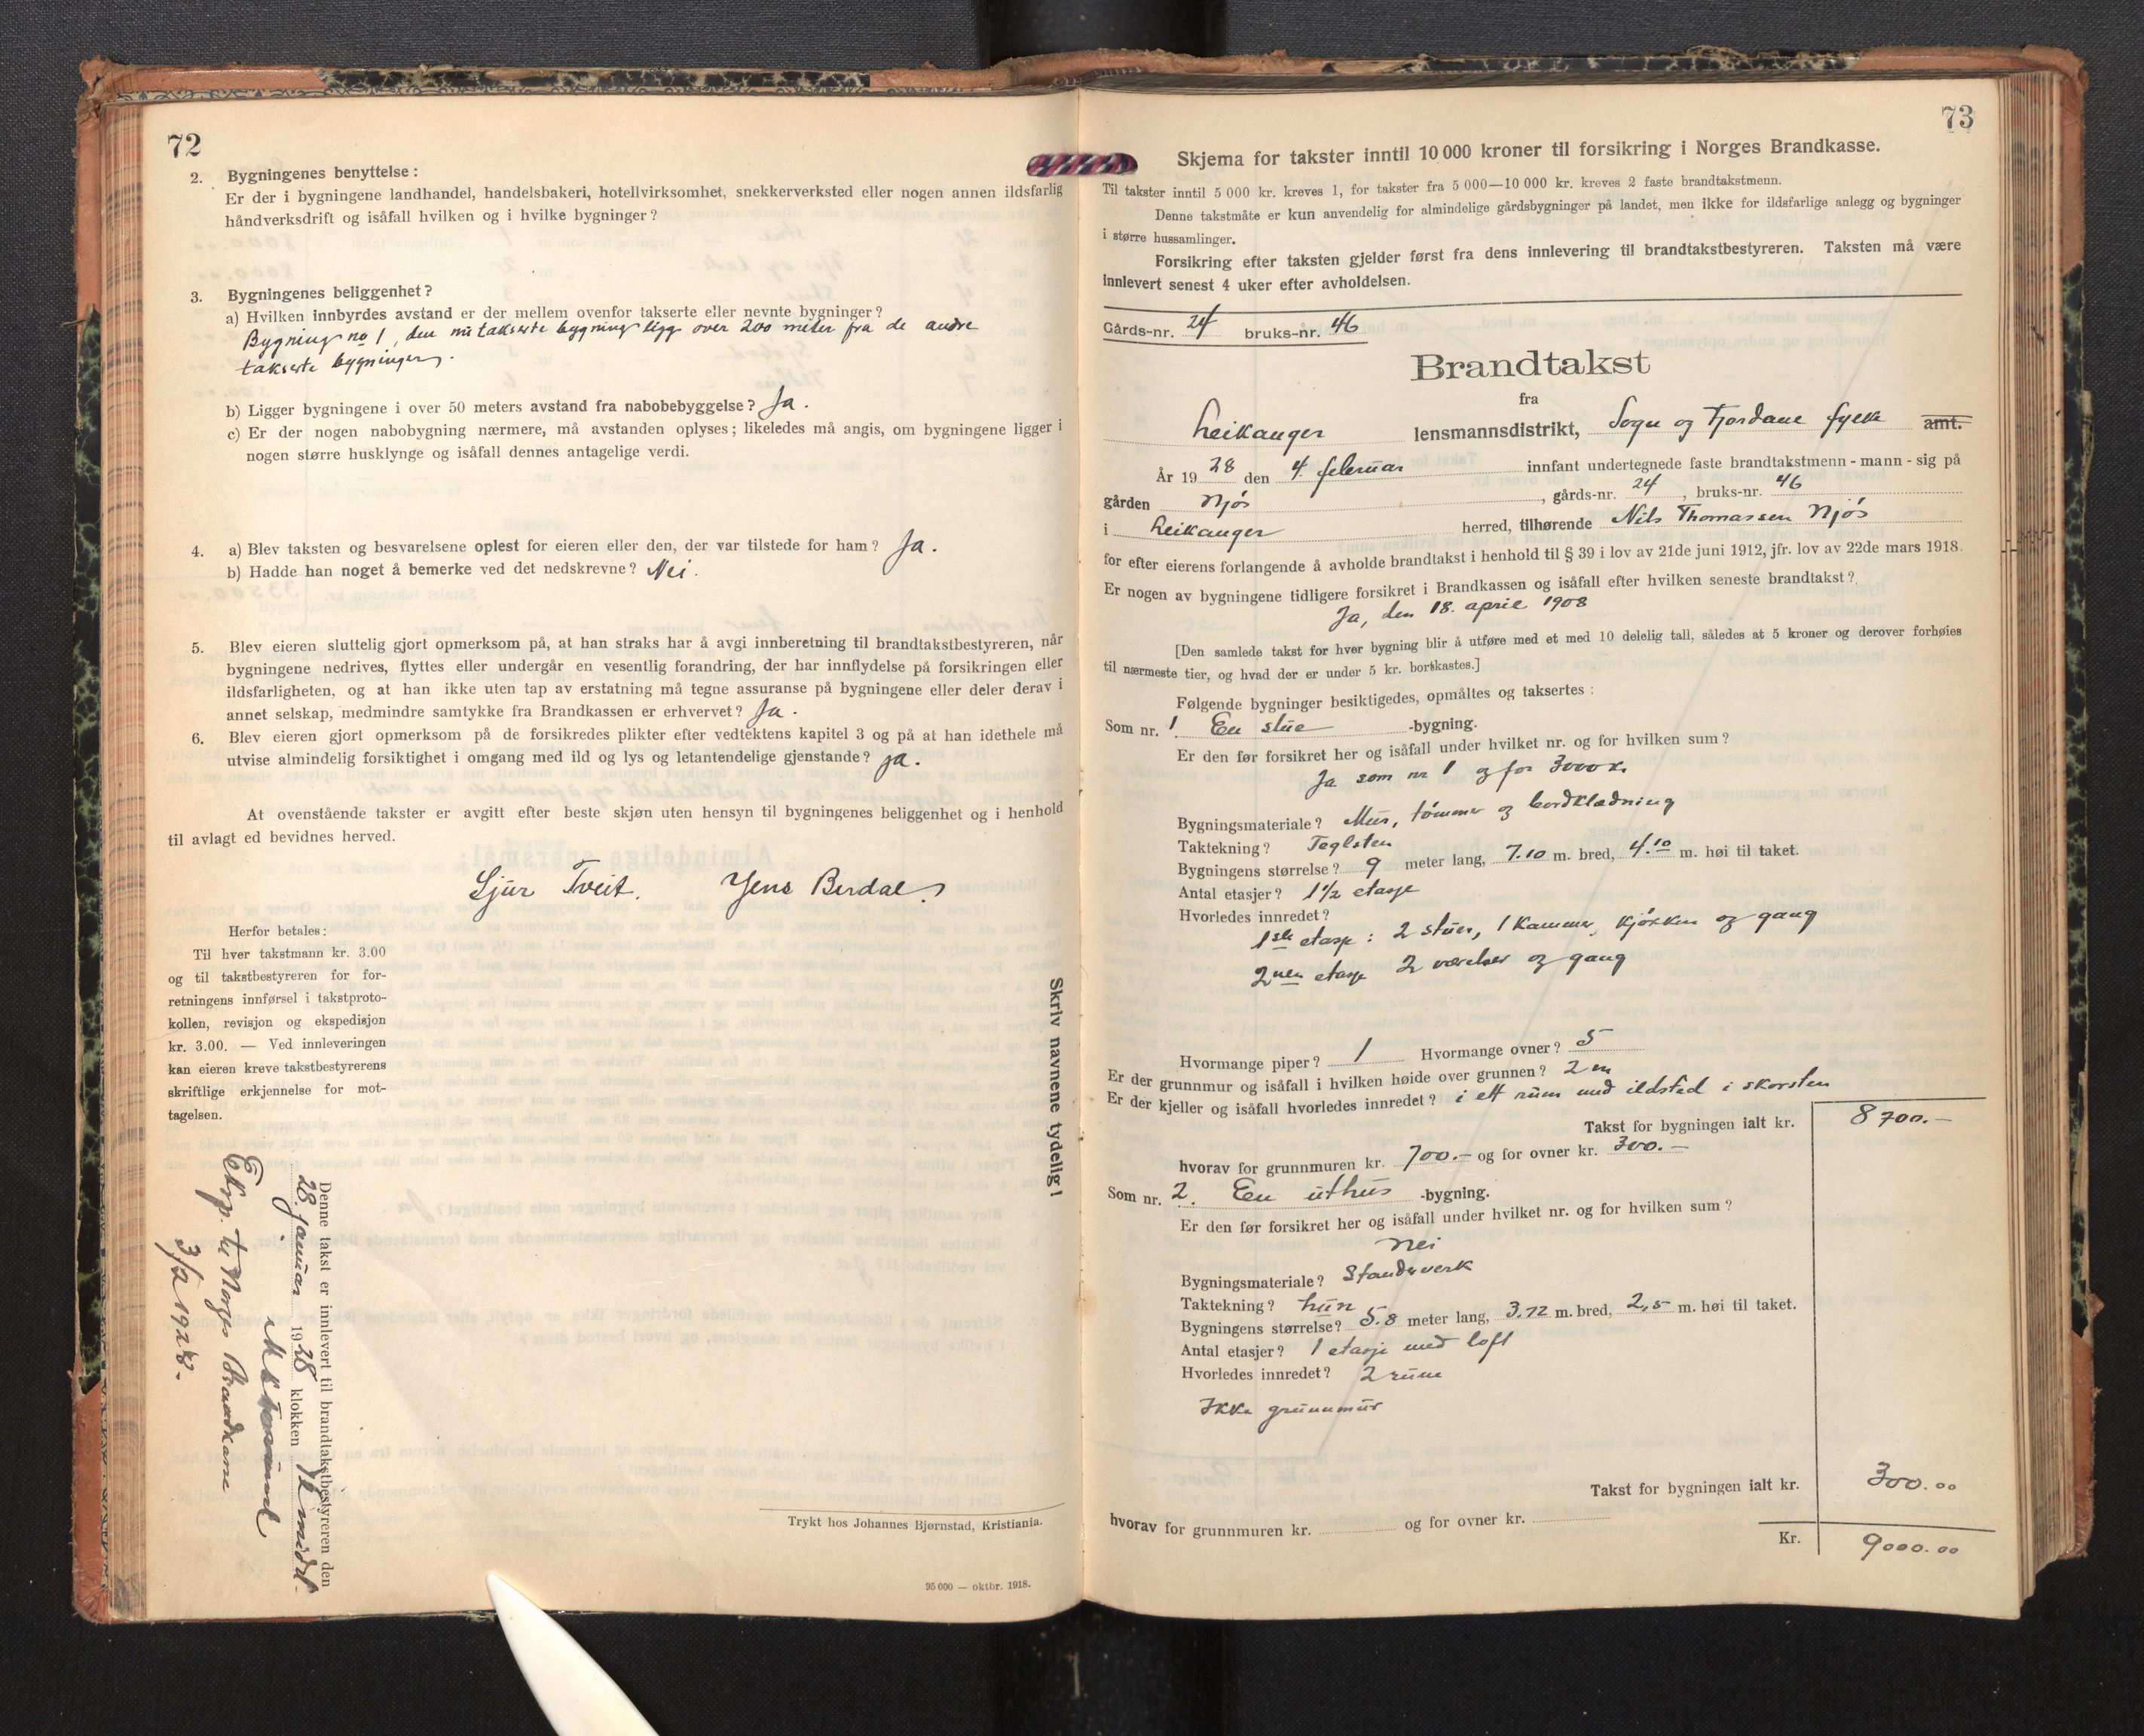 72
2. Bygningenes benyttelse:
Er der i bygningene landhandel, handelsbakeri, hotellvirksomhet, snekkerverksted eller nogen annen ildsfarlig
håndverksdrift og isåfall hvilken og i hvilke bygninger?
3. Bygningenes beliggenhet?
a) Hvilken innbyrdes avstand er der mellem ovenfor takserte eller nevnte bygninger?
Bygning no 1, den nu takserte bygning ligg over 200 meter fra de andre
takserte bygninger.
b) Ligger bygningene i over 50 meters avstand fra nabobebyggelse? Ja.
c) Er der nogen nabobygning nærmere, må avstanden oplyses; likeledes må angis, om bygningene ligger i
nogen større husklynge og isåfall dennes antagelige verdi.
4. a) Blev taksten og besvarelsene oplest for eieren eller den, der var tilstede for ham? Ja.
b) Hadde han noget å bemerke ved det nedskrevne? Nei.
5. Blev eieren sluttelig gjort opmerksom på, at han straks har å avgi innberetning til brandtakstbestyreren, når
bygningene nedrives, flyttes eller undergår en vesentlig forandring, der har innflydelse på forsikringen eller
ildsfarligheten, og at han ikke uten tap av erstatning må tegne assuranse på bygningene eller deler derav i
annet selskap, medmindre samtykke fra Brandkassen er erhvervet? Ja.
6. Blev eieren gjort opmerksom på de forsikredes plikter efter vedtektens kapitel 3 og på at han idethele må
utvise almindelig forsiktighet i omgang med ild og lys og letantendelige gjenstande? Ja.
At ovenstående takster er avgitt efter beste skjøn uten hensyn til bygningenes beliggenhet og i henhold
til avlagt ed bevidnes herved.
Sjur Tveit. Jens Berdal.
Herfor betales:
Til hver takstmann kr. 3.00
og til takstbestyreren for for-
retningens innførsel i takstproto-
kollen, revisjon og ekspedisjon
kr. 3.00. — Ved innleveringen
kan eieren kreve takstbestyrerens
skriftlige erkjennelse for mot-
tagelsen.
Skriv navnene tydelig!
Denne takst er innlevert til brandtakstbestyreren den
28. januar 1928 klokken 12 midd.
Eksp. til Norges Brandkasse
3/2 1928.
Trykt hos Johannes Bjørnstad, Kristiania.
95 000 — oktbr. 1918.
73
Skjema for takster inntil 10 000 kroner til forsikring i Norges Brandkasse.
Til takster inntil 5 000 kr. kreves 1, for takster fra 5 000—10 000 kr. kreves 2 faste brandtakstmenn.
Denne takstmåte er kun anvendelig for almindelige gårdsbygninger på landet, men ikke for ildsfarlige anlegg og bygninger
i større hussamlinger.
Forsikring efter taksten gjelder først fra dens innlevering til brandtakstbestyreren. Taksten må være
innlevert senest 4 uker efter avholdelsen.
Gårds-nr. 24 bruks-nr. 46
Brandtakst
fra
Leikanger lensmannsdistrikt, Sogn og Fjordane fylke amt.
År 1928 den 4. februar innfant undertegnede faste brandtakstmenn - mann - sig på
gården Njøs, gårds-nr. 24, bruks-nr. 46
i Leikanger herred, tilhørende Nils Thomassen Njøs
for efter eierens forlangende å avholde brandtakst i henhold til § 39 i lov av 21de juni 1912, jfr. lov av 22de mars 1918.
Er nogen av bygningene tidligere forsikret i Brandkassen og isåfall efter hvilken seneste brandtakst?
Ja, den 18. april 1908
[Den samlede takst for hver bygning blir å utføre med et med 10 delelig tall, således at 5 kroner og derover forhøies
til nærmeste tier, og hvad der er under 5 kr. bortkastes.]
Følgende bygninger besiktigedes, opmåltes og taksertes:
Som nr. 1 En stue -bygning.
Er den før forsikret her og isåfall under hvilket nr. og for hvilken sum?
Ja som nr 1 og for 3000 k.
Bygningsmateriale? Mur, tømmer og bordklædning
Taktekning? Teglsten
Bygningens størrelse? 9 meter lang, 7.10 m. bred, 4.10 m. høi til taket.
Antal etasjer? 1 1/2 etasje
Hvorledes innredet?
1ste etasje: 2 stuer, 1 kammer, kjøkken og gang
2nen etasje 2 værelser og gang
Hvormange piper? 1 Hvormange ovner? 5
Er der grunnmur og isåfall i hvilken høide over grunnen? 2 m
Er der kjeller og isåfall hvorledes innredet? i ett rum med ildsted i skorsten
Takst for bygningen ialt kr. 8700.—
hvorav for grunnmuren kr. 700.— og for ovner kr. 300.—
Som nr. 2. En uthus -bygning.
Er den før forsikret her og isåfall under hvilket nr. og for hvilken sum?
Nei
Bygningsmateriale? Standverk
Taktekning? hun
Bygningens størrelse? 5.8 meter lang, 3.72 m. bred, 2,5 m. høi til taket.
Antal etasjer? 1 etasje med loft
Hvorledes innredet? 2 rum
Ikke grunnmur
Takst for bygningen ialt kr. 300.00
hvorav for grunnmuren kr. og for ovner kr.
Kr. 9000.00